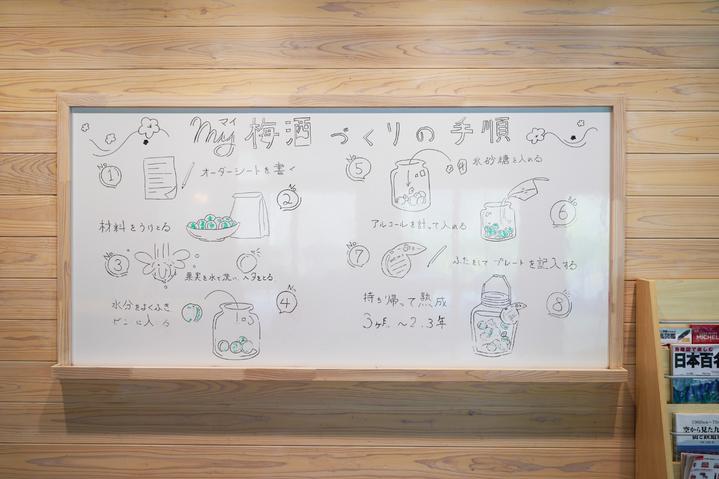 マイ
My 梅酒 づくりの手順
No 1
オーダーシートを書く
No 2
材料をうけとる
No 3
果実を水で洗い、ヘタをとる
No 4
水分をよくふき
ビンに入る
No 5
氷砂糖を入れる
No 6
アルコールを計って入れる
No 7
ふたをして プレートを記入する
No 8
持ち帰って熟成
3ヶ月 〜2.3年
MICHEL
日本百名
空から見た九